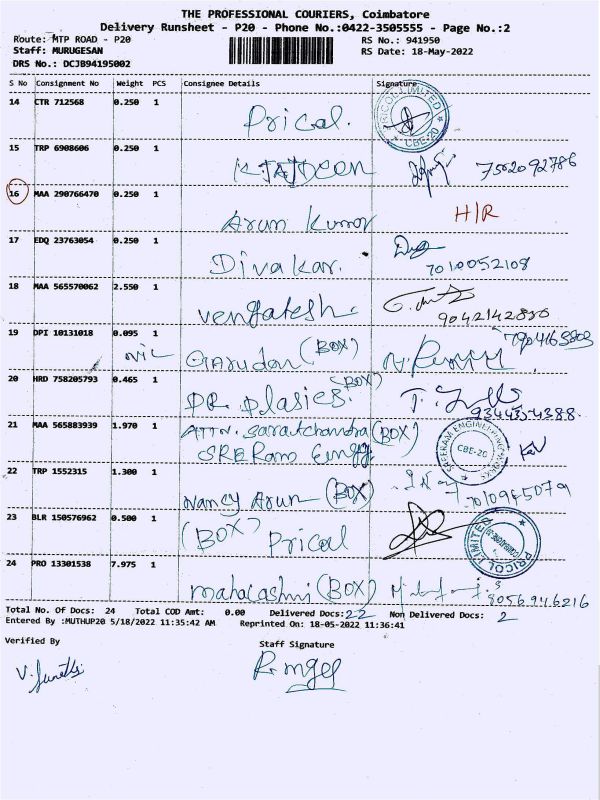 THE PROFESSIONAL COURIERS, Coimbatore
Delivery Runsheet - P20 - Phone No.:0422-3505555 - Page No.:2
Route: MTP ROAD - P20 RS No.: 941950
Staff: MURUGESAN RS Date: 18-May-2022
DRS No.: DCJB94195002
S No Consignment No Weight PCS Consignee Details Signature
14 CTR 712568 0.250 1 Pricol. PRICOL LIMITED CBE-20
15 TRP 6908606 0.250 1 7502092786
16 MAA 290766470 0.250 1 Arun Kumar H/R
17 EDQ 23763054 0.250 1 Divakar. 7010052108
18 MAA 565570062 2.550 1 Vengatesh.
19 DPI 10131018 0.095 1 Nil Garudan (BOX)
20 HRD 758205793 0.465 1 (BOX)
21 MAA 565883939 1.970 1 ATTN. Saratchandra (BOX) CBE-20
SRE Ram Engg
22 TRP 1552315 1.300 1 Nancy Arun (BOX)
23 BLR 150576962 0.500 1 (BOX) Pricol PRICOL LIMITED
24 PRO 13301538 7.975 1 Mahalashmi (BOX) 8056946216
Total No. Of Docs: 24 Total COD Amt: 0.00 Delivered Docs: 22 Non Delivered Docs: 2
Entered By :MUTHUP20 5/18/2022 11:35:42 AM Reprinted On: 18-05-2022 11:36:41
Verified By Staff Signature